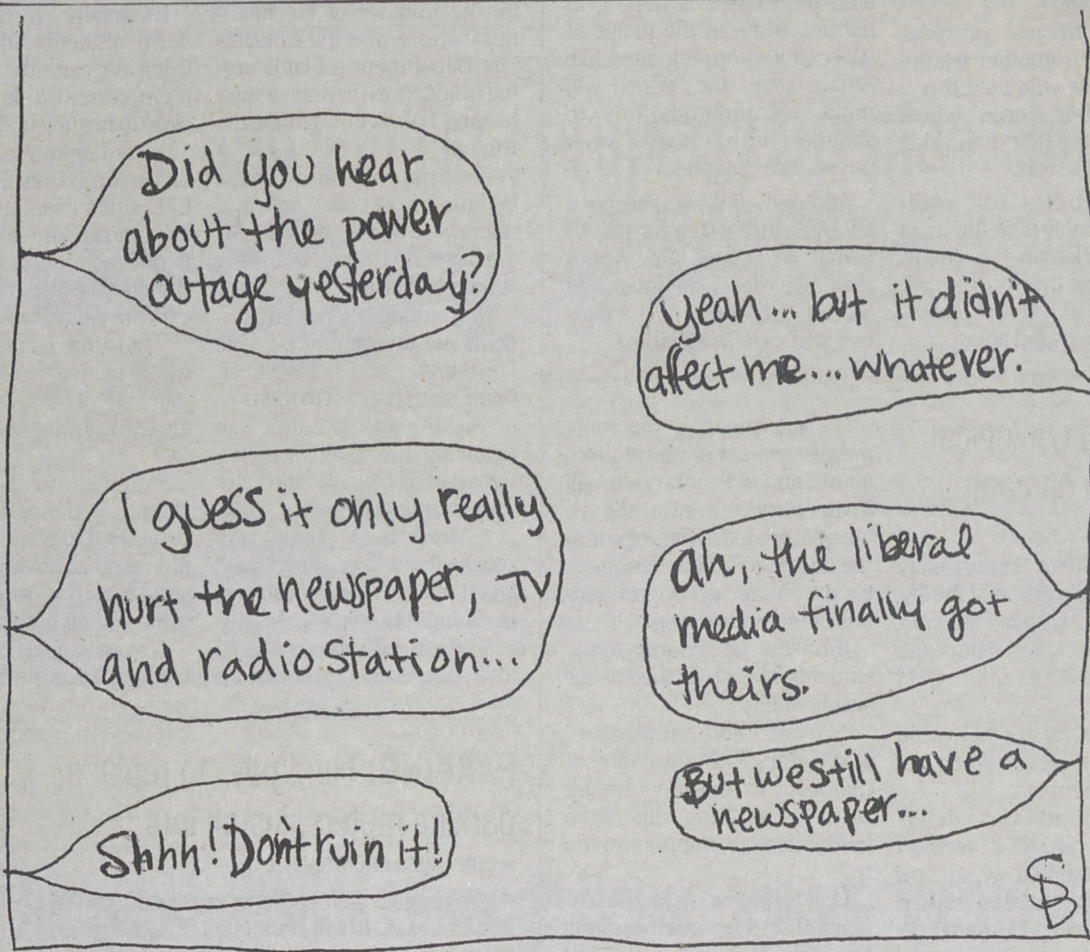 Did you hear
about the power
outage yesterday?
yeah... but it didn't
affect me... whatever.
I guess it only really
hurt the newspaper, TV
and radio station...
ah, the liberal
media finally got
theirs.
But we still have a
newspaper...
Shhh! Don't ruin it!
SB